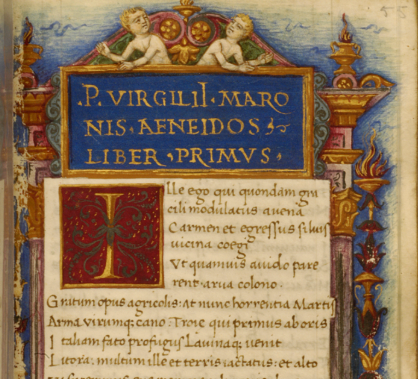 ·P·VIRGILII·MARO
NIS·AENEIDOS
LIBER·PRIMVS·
Ille ego qui quondam gra
cili modulatus avena
Carmen et egressus siluis
uicina coegi
Vt quamuis auido pare
rent arua colono:
Gratum opus agricolis: At nunc horrentia Martis
Arma virumq; cano: Troie qui primus ab oris
Italiam fato profugus Lauinaq; uenit
Litora: multum ille et terris iactatus: et alto